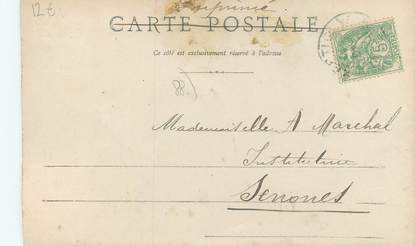 12 €
Imprimé
CARTE POSTALE
Ce côté est exclusivement réservé à l'adresse
88
Mademoiselle A Marchal
Institutrice
Senones